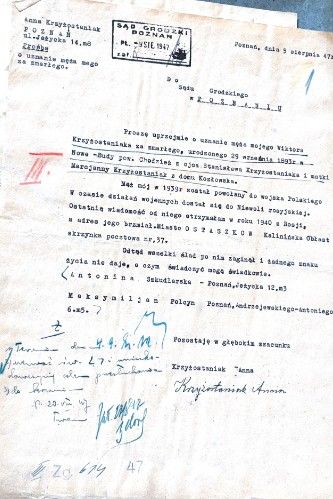 Anna Krzyżostaniak
P O Z N A Ń
ul.Jeżycka 14,m8
Prośba
o uznanie męża mego
za zmarłego.
SĄD GRODZKI
POZNAŃ
SIE.1947
Poznań, dnia 5 sierpnia 47r
1
Do
Sądu Grodzkiego
w P O Z N A N I U
Proszę uprzejmie o uznanie męża mojego Wiktora
Krzyżostaniaka za zmarłego, urodzonego 29 września 1893r w
Nowe -Budy pow. Chodzież z ojca Stanisława Krzyżostaniaka i matki
Marcjanny Krzyżostaniak z domu Kozłowska.
III.
Mąż mój w 1939r został powołany do wojska Polskiego
W czasie działań wojennych dostał się do Niewoli rosyjskiej.
Ostatnią wiadomość od niego otrzymałam w roku 1940 z Rosji,
a adres jego brzmiał.Miasto O S T A S Z K Ó W Kalinińska Obłast
skrzynka pocztowa nr,37.
Odtąd wszelki ślad po nim zaginął i żadnego znaku
życia nie daje, o czym świadczyć mogą świadkowie.
A n t o n i n a Szkudlarska - Poznań,Jeżycka 12,m3
M a k s y m i l j a n Polcyn Poznań,Andrzejewskiego-Antoniego
6.m5.
Pozostaję w głębokim szacunku
Krzyżostaniak Anna
Krzyżostaniak Anna
Zg 614 47